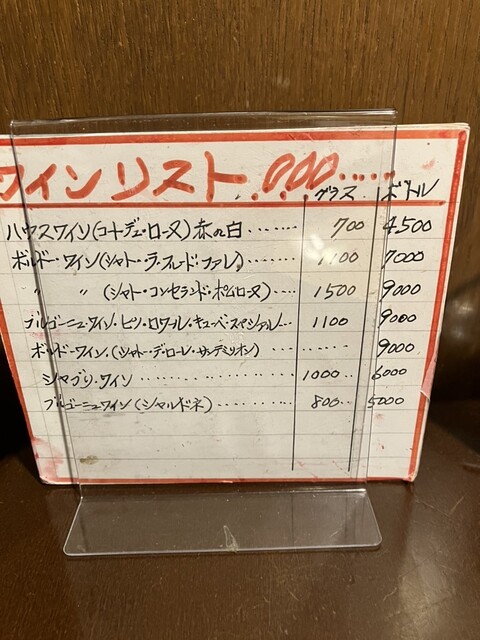 ワインリスト
グラス ボトル
ハウスワイン(コートデュ・ローヌ)赤or白 ...... 700 4500
ボルドー・ワイン(シャトー・ラ・フルード・ファレ) ...... 1100 7000
〃 〃 (シャトー・コンセランド・ポムローヌ) 1500 9000
ブルゴーニュ・ワイン・ピノ・ロワール・キューベ・スペシャル... 1100 9000
ボルドーワイン.(シャトー・デ・ローレ・サンテミリオン) ...... 9000
シャブリ・ワイン ............ 1000... 6000
ブルゴーニュワイン(シャルドネ) ......... 800.. 5000